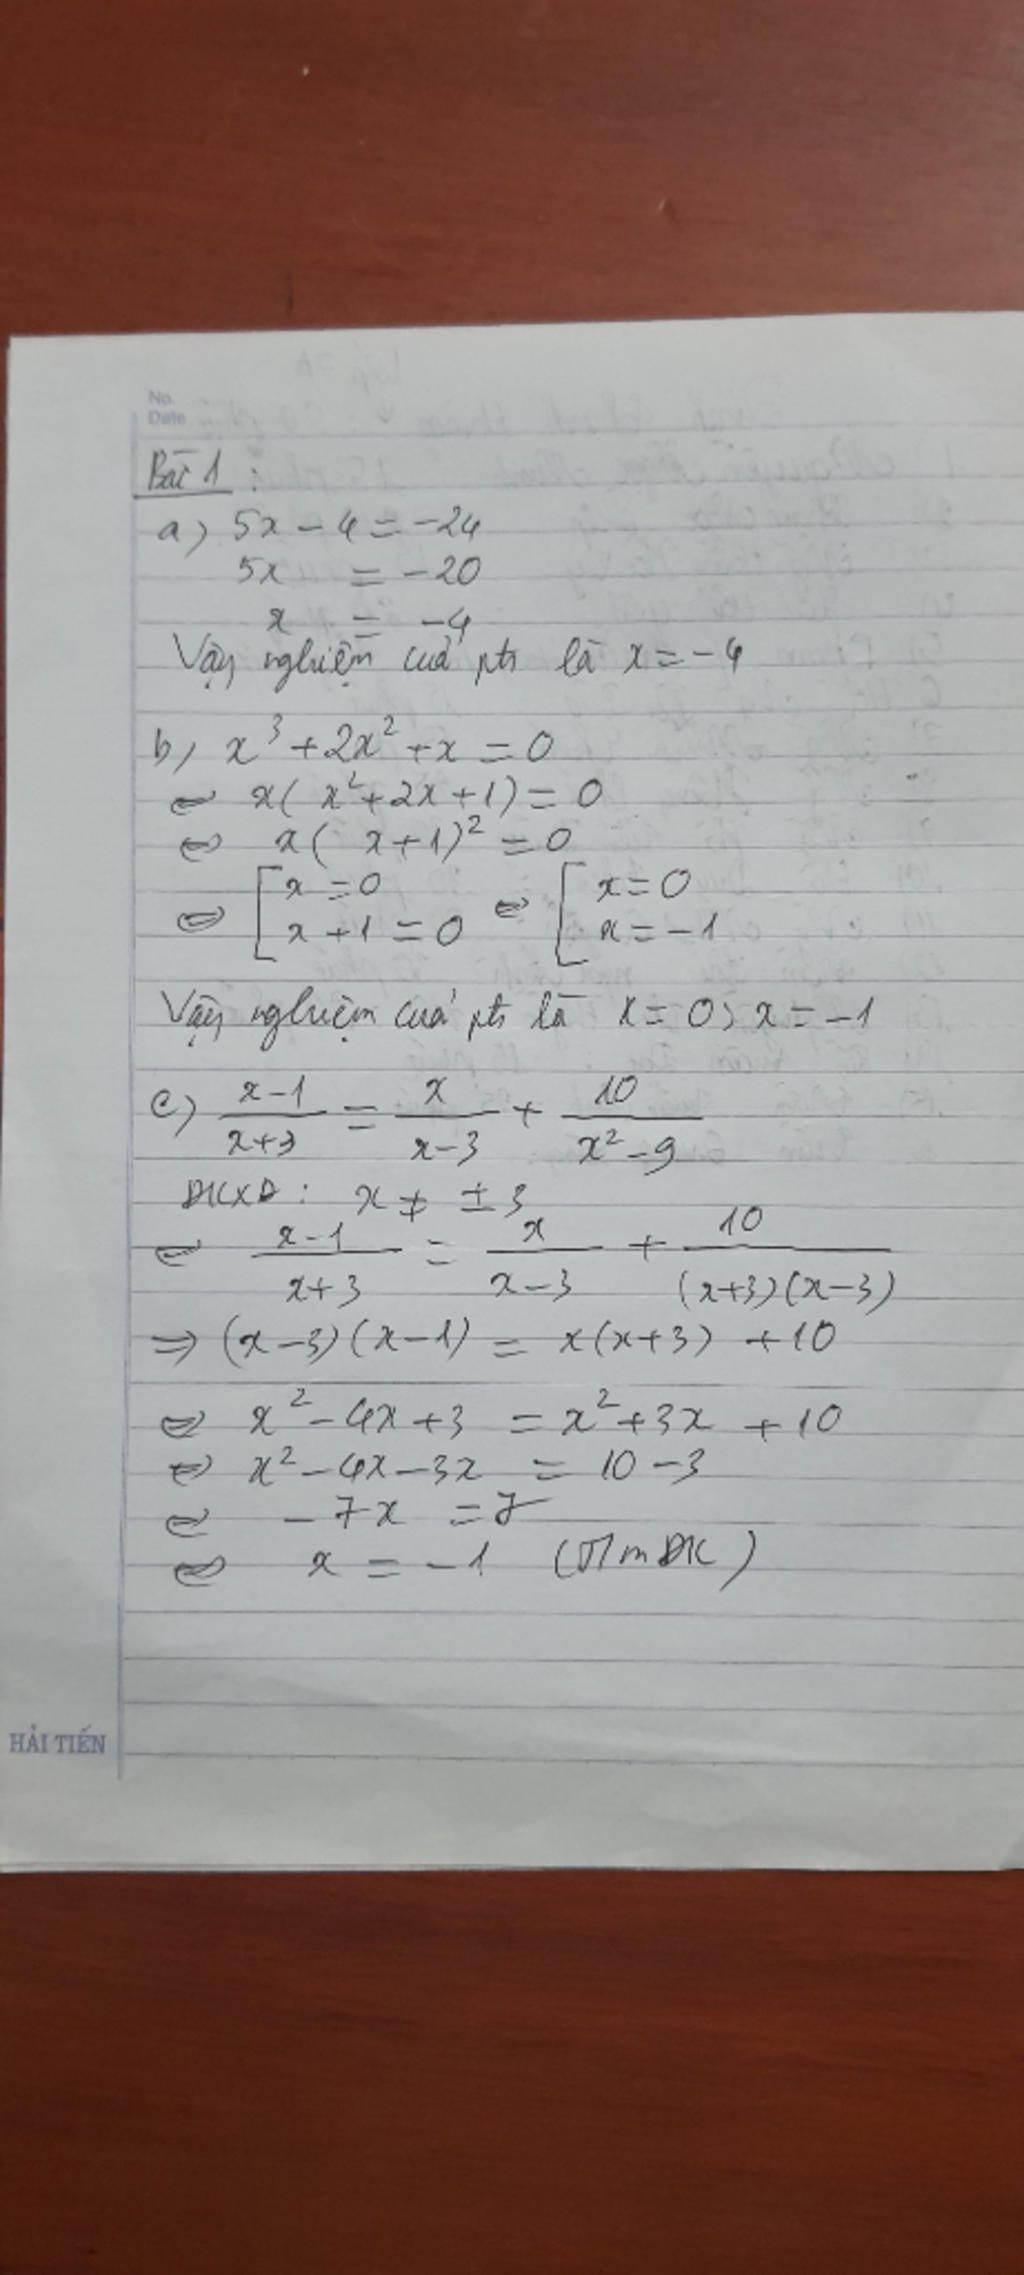 No.
Date
Bài 1 :
a) 5x - 4 = -24
5x = -20
x = -4
Vậy nghiệm của pt là x = -4
b) x³ + 2x² + x = 0
⇔ x( x² + 2x + 1) = 0
⇔ x( x + 1)² = 0
⇔ [ x = 0 ; x + 1 = 0 ⇔ [ x = 0 ; x = -1
Vậy nghiệm của pt là x = 0 ; x = -1
c) (x-1)/(x+3) = x/(x-3) + 10/(x²-9)
ĐKXĐ : x ≠ ± 3
⇔ (x-1)/(x+3) = x/(x-3) + 10/((x+3)(x-3))
⇒ (x-3)(x-1) = x(x+3) + 10
⇔ x² - 4x + 3 = x² + 3x + 10
⇔ x² - 4x - 3x = 10 - 3
⇔ - 7x = 7
⇔ x = -1 (T/m ĐK)
HẢI TIẾN